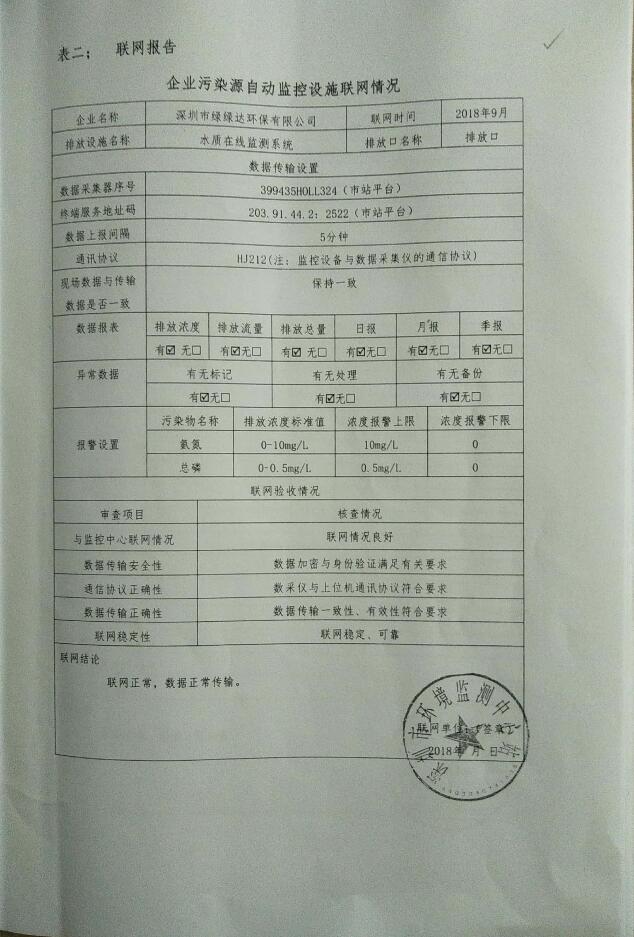 表二； 联网报告
企业污染源自动监控设施联网情况
企业名称 深圳市绿绿达环保有限公司 联网时间 2018年9月
排放设施名称 水质在线监测系统 排放口名称 排放口
数据传输设置
数据采集器序号 399435HOLL324（市站平台）
终端服务地址码 203.91.44.2：2522（市站平台）
数据上报间隔 5分钟
通讯协议 HJ212(注：监控设备与数据采集仪的通信协议)
现场数据与传输 保持一致
数据是否一致
数据报表 排放浓度 排放流量 排放总量 日报 月报 季报
有☑ 无☐ 有☑无☐ 有☑ 无☐ 有☑无☐ 有☑无☐ 有☑无☐
异常数据 有无标记 有无处理 有无备份
有☑无☐ 有☑无☐ 有☑无☐
污染物名称 排放浓度标准值 浓度报警上限 浓度报警下限
报警设置 氨氮 0-10mg/L 10mg/L 0
总磷 0-0.5mg/L 0.5mg/L 0
联网验收情况
审查项目 核查情况
与监控中心联网情况 联网情况良好
数据传输安全性 数据加密与身份验证满足有关要求
通信协议正确性 数采仪与上位机通讯协议符合要求
数据传输正确性 数据传输一致性、有效性符合要求
联网稳定性 联网稳定、可靠
联网结论
联网正常，数据正常传输。
深圳市环境监测中心站
联网单位：（签章）
2018年 月 日